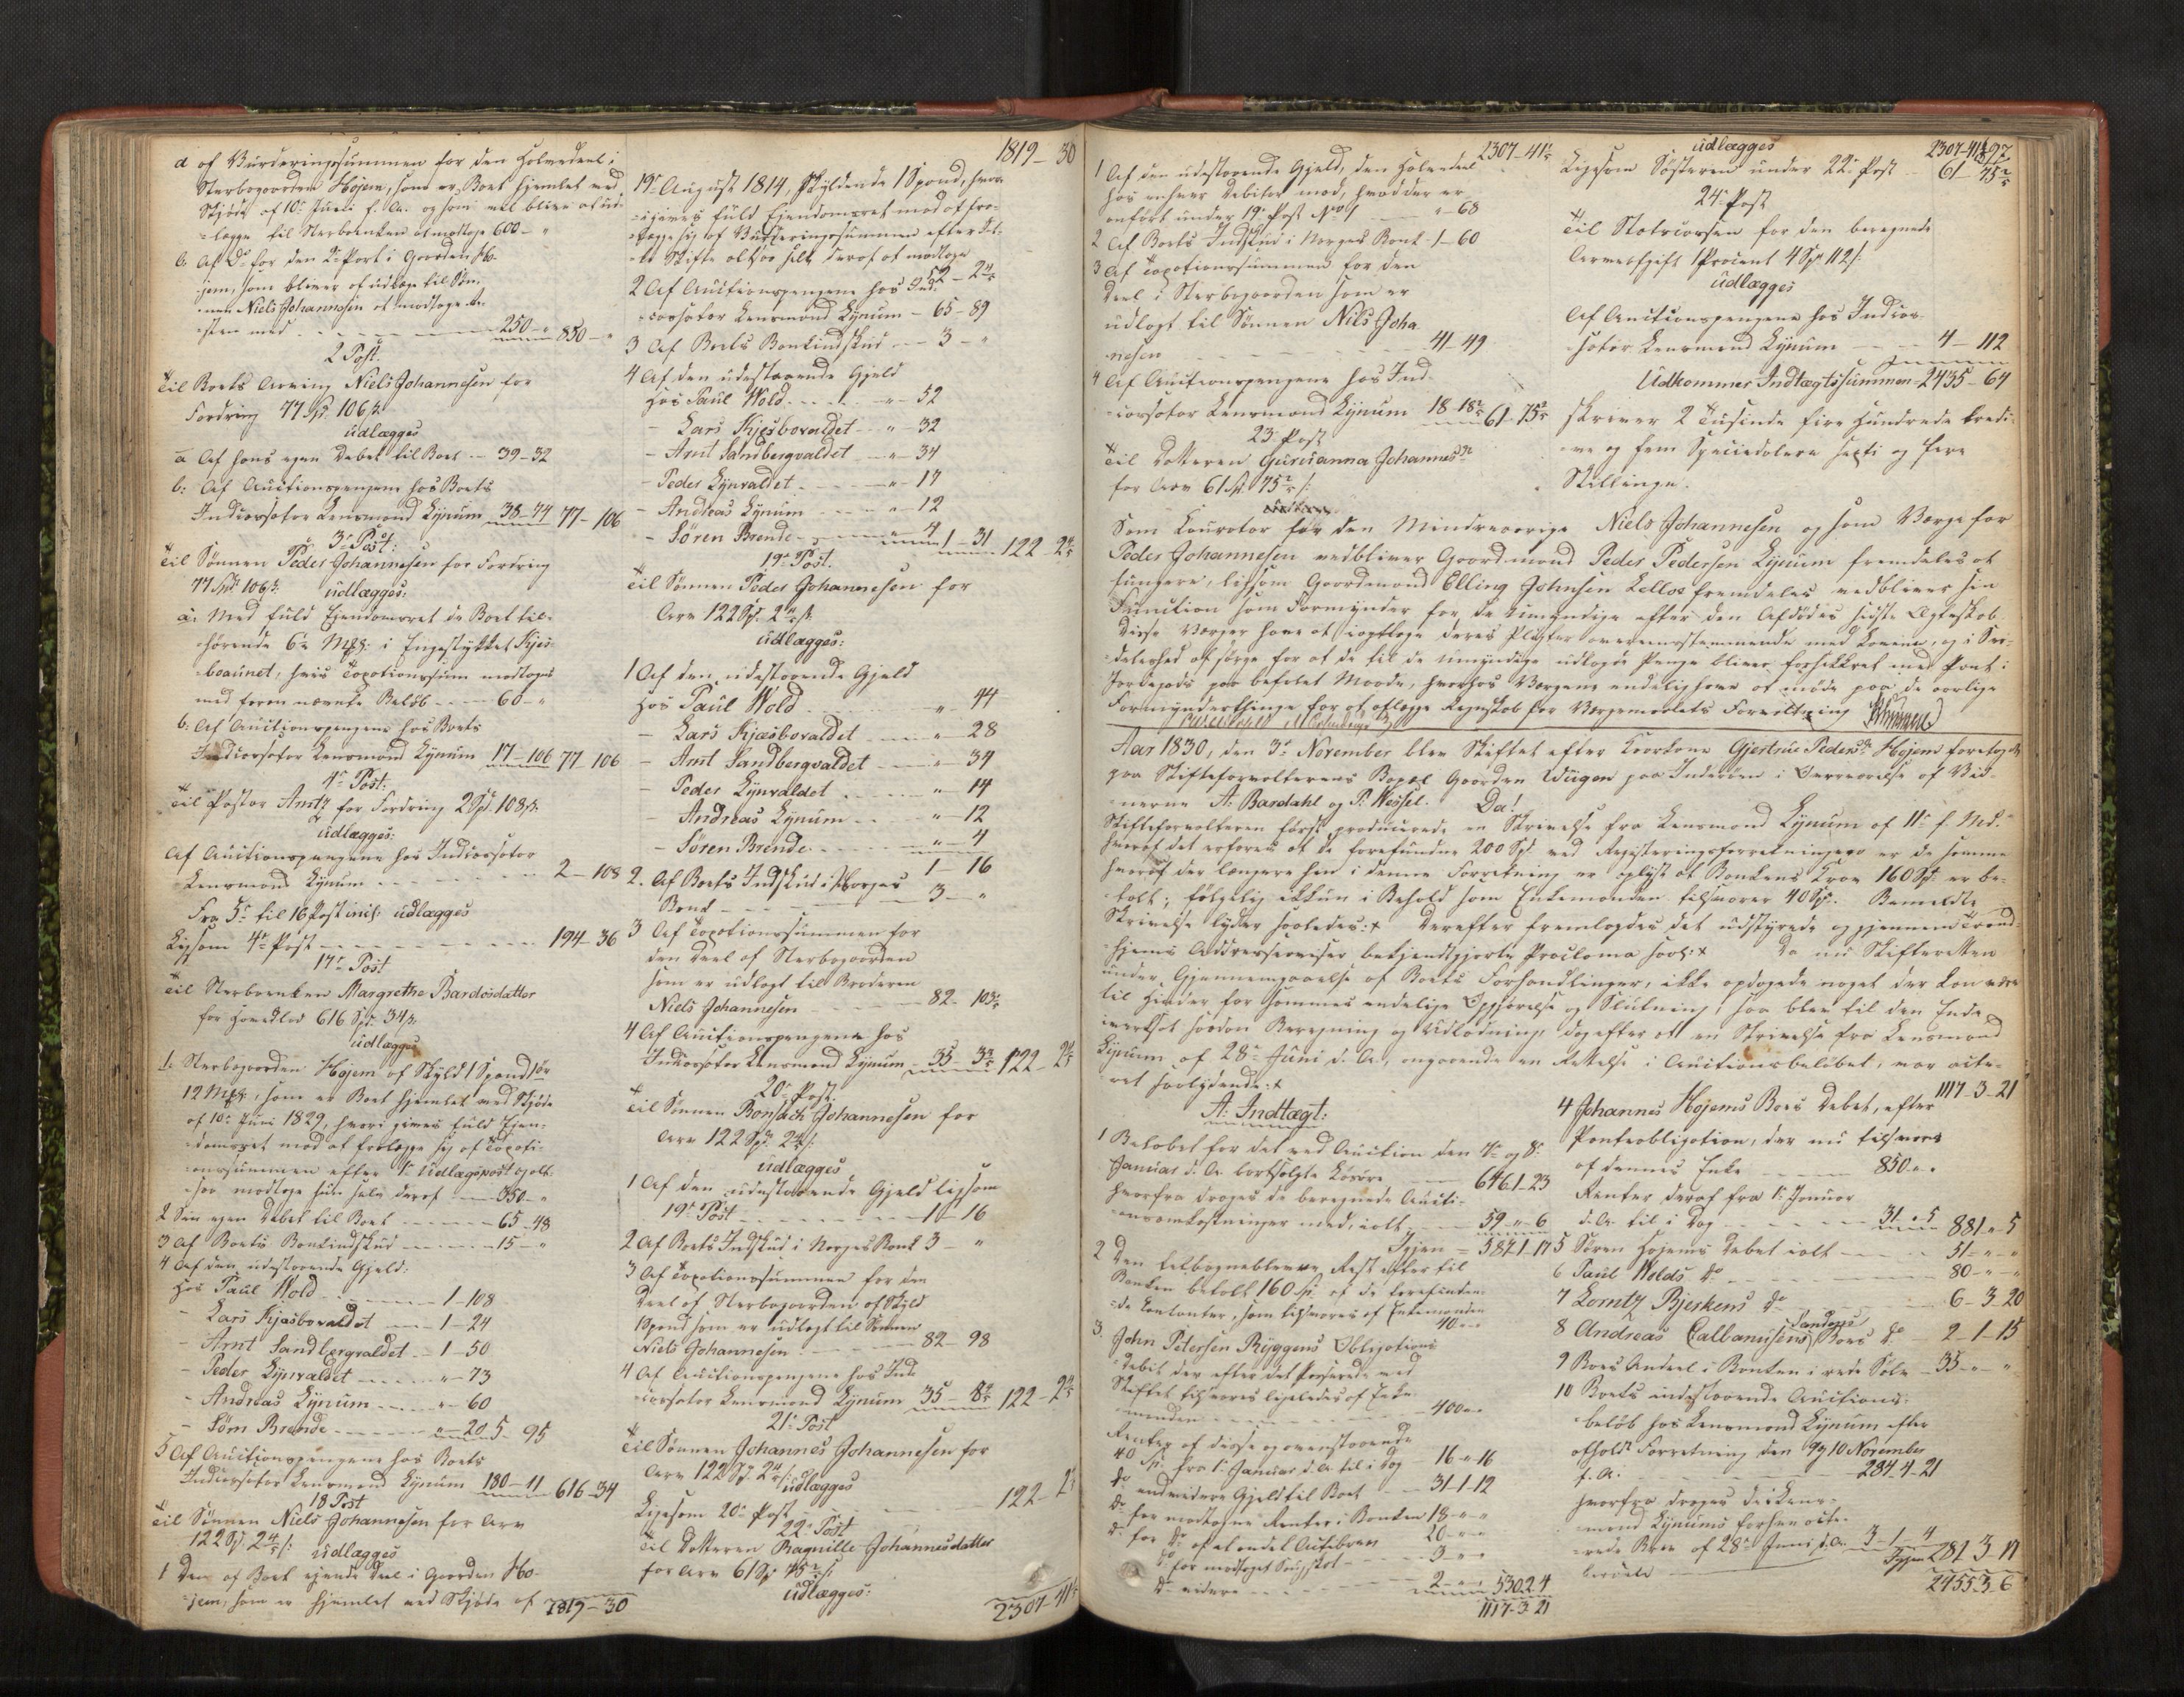 a af Vurderingssummen for den Halvedeel i
Sterbogaarden Højem, som er Boet hjemlet ved
Skjøde af 10de Juni f. A. og som vil blive at ud-
=lægge til Sterboenken at modtage 600 – "
b. Af Do for den 2de Part i Gaarden Ho-
jem, som bliver at udlægge til Søn-
nen Niels Johannesen at modtage
med 250 – " 850 – "
2 Post.
Til Boets Arving Niels Johannesen for
Fordring 77 Spd. 106 s.
udlægges
a Af hans egen Debet til Boet – 39–32
b. Af Auctionspengene hos Boets
Indcassator Lensmand Lynum 38–74 77–106
3de Post:
Til Sønnen Peder Johannesen for Fordring
77 Spd 106 s. udlægges:
a. Med fuld Eiendomsret de Boet til-
=hørende i Engestykket
med foran nævnte Beløb – 60 – "
b. Af Auctionspengene hos Boets
Indcassator Lensmand Lynum 17–106 77–106
4de Post:
Til Pastor Arntz for Fordring 2 Spd. 108 s.
udlægges:
Af Auctionspengene hos Indcassator
Lensmand Lynum 2–108
Fra 5te til 16 Post incl: udlægges
Ligesom 4de Post 194–36
17de Post
Til Sterboenken Margrethe Bardosdatter
for Hovedlod 616 Spd. 34 s.
udlægges
1. Sterbogaarden Højem af Skyld 1 Spand 1 Ør
12 Mkl., som er Boet hjemlet ved Skjøde
af 10de Juni 1829, hvori gives fuld Eien-
=domsret mod at fralægge sig af Taxati-
onssummen efter 1te Udlægspost og alt-
saa modtage halve deraf 350 – "
2 Sin egen Debet til Boet 65–48
3 Af Boets Bankindskud 15 – "
4 Af den udestaaende Gjeld:
Hos Paul Wold 1–108
– Lars Kjesbovaldet 1–24
– Arnt Sandbergvaldet 1–50
– Peder Lynvaldet "–73
– Andreas Lynum "–60
– Søren Brende "–20 5–95
5 Af Auctionspengene hos Boets
Indcassator Lensmand Lynum 180–11 616–34
18 Post
Til Sønnen Niels Johannesen for Arv
122 Spd. 2 4/5 s. udlægges
1 Den af Boet eiende Deel i Gaarden Ho-
jem, som er hjemlet ved Skjøde af 1819–30
1819–30
19de August 1814, skyldende 1 Spand, hvor
=i gives fuld Eiendomsret mod at fra-
lægge sig af Vurderingssummen efter
Skifte altsaa halv deraf at modtage
2 Af Auctionspengene hos Ind- 52–2 4/5
=cassator Lensmand Lynum – 65–89
3 Af Boets Bankindskud 3 – "
4 Af den udestaaende Gjeld
Hos Paul Wold "–52
– Lars Kjesbovaldet "–32
– Arnt Sandbergvaldet "–34
– Peder Lynvaldet "–17
– Andreas Lynum "–12
– Søren Brende "–4 1–31 122–2 4/5
19de Post.
Til Sønnen Peder Johannesen for
Arv 122 Spd. 2 4/5 s.
udlægges:
1 Af den udestaaende Gjeld
Hos Paul Wold "–44
– Lars Kjæsbovaldet "–28
– Arnt Sandbergvaldet "–34
– Peder Lynvaldet "–14
– Andreas Lynum "–12
– Søren Brende "–4
1–16
2. Af Boets Indskud i Norges
Bank 3 – "
3 Af Taxationssummen for
den Deel af Sterbogaarden
som er udlagt til Broderen
Niels Johannesen 82–103
4 Af Auctionspengene hos
Indcassator Lensmand Lynum 35–3 122–2 4/5
20de Post
Til Sønnen Bonsach Johannesen for
Arv 122 Spd. 2 4/5 s.
udlægges
1 Af den udestaaende Gjeld ligesom
19de Post 1–16
2 Af Boets Indskud i Norges Bank 3 – "
3 Af Taxationssummen for den
Deel af Sterbogaarden af Skyld
1 Spand som er udlagt til Sønnen
Niels Johannesen 82–98
4 Af Auctionspengene hos Ind-
cassator Lensmand Lynum 35–8 122–2 4/5
21de Post
Til Sønnen Johannes Johannesen for
Arv 122 Spd. 2 4/5 s.
udlægges
Ligesom 20de Post 122–2 4/5
22de Post
Til Datteren Ragnille Johannesdatter
for Arv 61 Spd 75 2/5 s.
udlægges:
2307–41
2307–41
1 Af den udestaaende Gjeld, den Halvedeel
hos enhver Debitor mod, hvad der er
anført under 19de Post No 1 "–68
2 Af Boets Indskud i Norges Bank 1–60
3 Af Taxationssummen for den
Deel i Sterbogaarden som er
udlagt til Sønnen Nils Joha
nesen 41–49
4 Af Auctionspengene hos Ind-
cassator Lensmand Lynum 18–18 61–75 2/5
23de Post
Til Datteren Gurianna Johannesdr
for Arv 61 Spd. 75 2/5 s.
udlægges
2307–41
397
Ligesom Søsteren under 22de Post 61–75 2/5
24de Post
Til Statscassen for den beregnede
Arveafgift 1 Procent 4 Spd 112 s.
udlægges
Af Auctionspengene hos Indcas-
sator Lensmand Lynum 4–112
Udkommer Indtægtssummen 2435–64
skriver 2 Tusinde fire Hundrede tredi-
ve og fem Speciedalere sexti og fire
Skillinge.
Som Curator for den Mindreaarige Niels Johannesen og som Værge for
Peder Johannesen vedbliver Gaardmand Peder Pedersen Lynum fremdeles at
fungere, ligesom Gaardmand Elling Johnsen Lello fremdeles vedbliver sin
Function som Formynder for de Umyndige efter den Afdødes sidste Ægteskab.
Disse Værger have at iagttage deres Pligter overensstemmende med Loven, og i Sær-
deleshed at sørge for at de til de Umyndige udlagde Penge bliver forsikkret med Pant i
Jordegods paa befalet Maade, hvorhos Værgerne endelig have at møde paa de aarlige
Formynderthinge for at aflægge Regnskab for Værgemaalets Forvaltning
Aar 1830, den 3de November blev Skiftet efter Kaarkone Gjertrue Pedersdr Højem foretaget
paa Skifteforvalterens Bopæl Gaarden Wiigen paa Inderøen i Overværelse af Vid-
nerne A. Bardahl og P. Wessel. Da!
Skifteforvalteren først producerede en Skrivelse fra Lensmand Lynum af 11te f. Md.
hvoraf det erfares at de forefundne 200 Spd. ved Registreringsforretningen er de samme
hvoraf der længere hen i denne Forretning er oplyst at Bankens Krav 160 Spd. er be-
talt; følgelig ikkun i Behold som Enkemanden tilsvarer 40 Spd. Bemeldte
Skrivelse lyder saaledes: + Derefter fremlagdes det udstyrede og gjennem Trond-
hjems Addresseaviser bekjendtgjorte Proclama saal: + Da nu Skifteretten
under Gjennemgaaelse af Boets Forhandlinger, ikke opdagede noget der kan være
til Hinder for sammes endelige Opgjørelse og Slutning, saa blev til den Ende
iverksat saadan Beregning og Udlodning, dog efter at en Skrivelse fra Lensmand
Lynum af 28de Juni d. A., angaaende en Rettelse i Auctionsbeløbet, var acte-
ret saalydende: +
A. Indtægt:
1 Beløbet for det ved Auction den 7de og 8de
Januar d. A. bortsolgte Løsøre 646.1.23
hvorfra drages de beregnede Aucti-
onsomkostninger med, ialt 59–"–6
Igjen = 587.1.17
2 Den tilbageblevne Rest efter til
Banken betalt 160 Spd. af de forefunden-
de Contanter, som tilsvares af Enkemanden
40 – " – "
3. John Petersen Ryggens Obligations
Debet der efter det Passerede ved
Skiftet tilsvares ligeledes af Enke-
manden 400 – " – "
Renter af disse og ovenstaaende
40 Spd. fra 1te Januar d. A. til i Dag 16–"–16
Do endvidere Gjeld til Boet 31–1–12
Do for modtagne Renter i Banken 18–"–"
Do for Do af 20–"–"
Do for modtaget 3–"–"
Do videre 2–"–" 530.2.4
1117–3–21
1117–3–21
4 Johannes Højems Boes Debet, efter
Panteobligation, der nu tilsvares
af dennes Enke 850 – " – "
Renter deraf fra 1te Januar
d. A. til i Dag 31–"–5 881–"–5
5 Søren Højems Debet ialt 51–"–"
6 Paul Wolds Do 80–"–"
7 Lorntz Bjerkens Do 6–3–20
8 Andreas Callanusens Boes Do 2–1–15
9 Boes Andeel i Banken i rede Sølv 35–"–"
10 Boets indestaaende Auctions-
beløb hos Lensmand Lynum efter
afholdt Forretning den 9 og 10 November
f. A. 284–4–21
hvorfra drages de i Lens-
mand Lynums foran acte-
rede Brev af 28de Juni d. A. 3–1–4
Igjen 281–3–17
2455–3–6